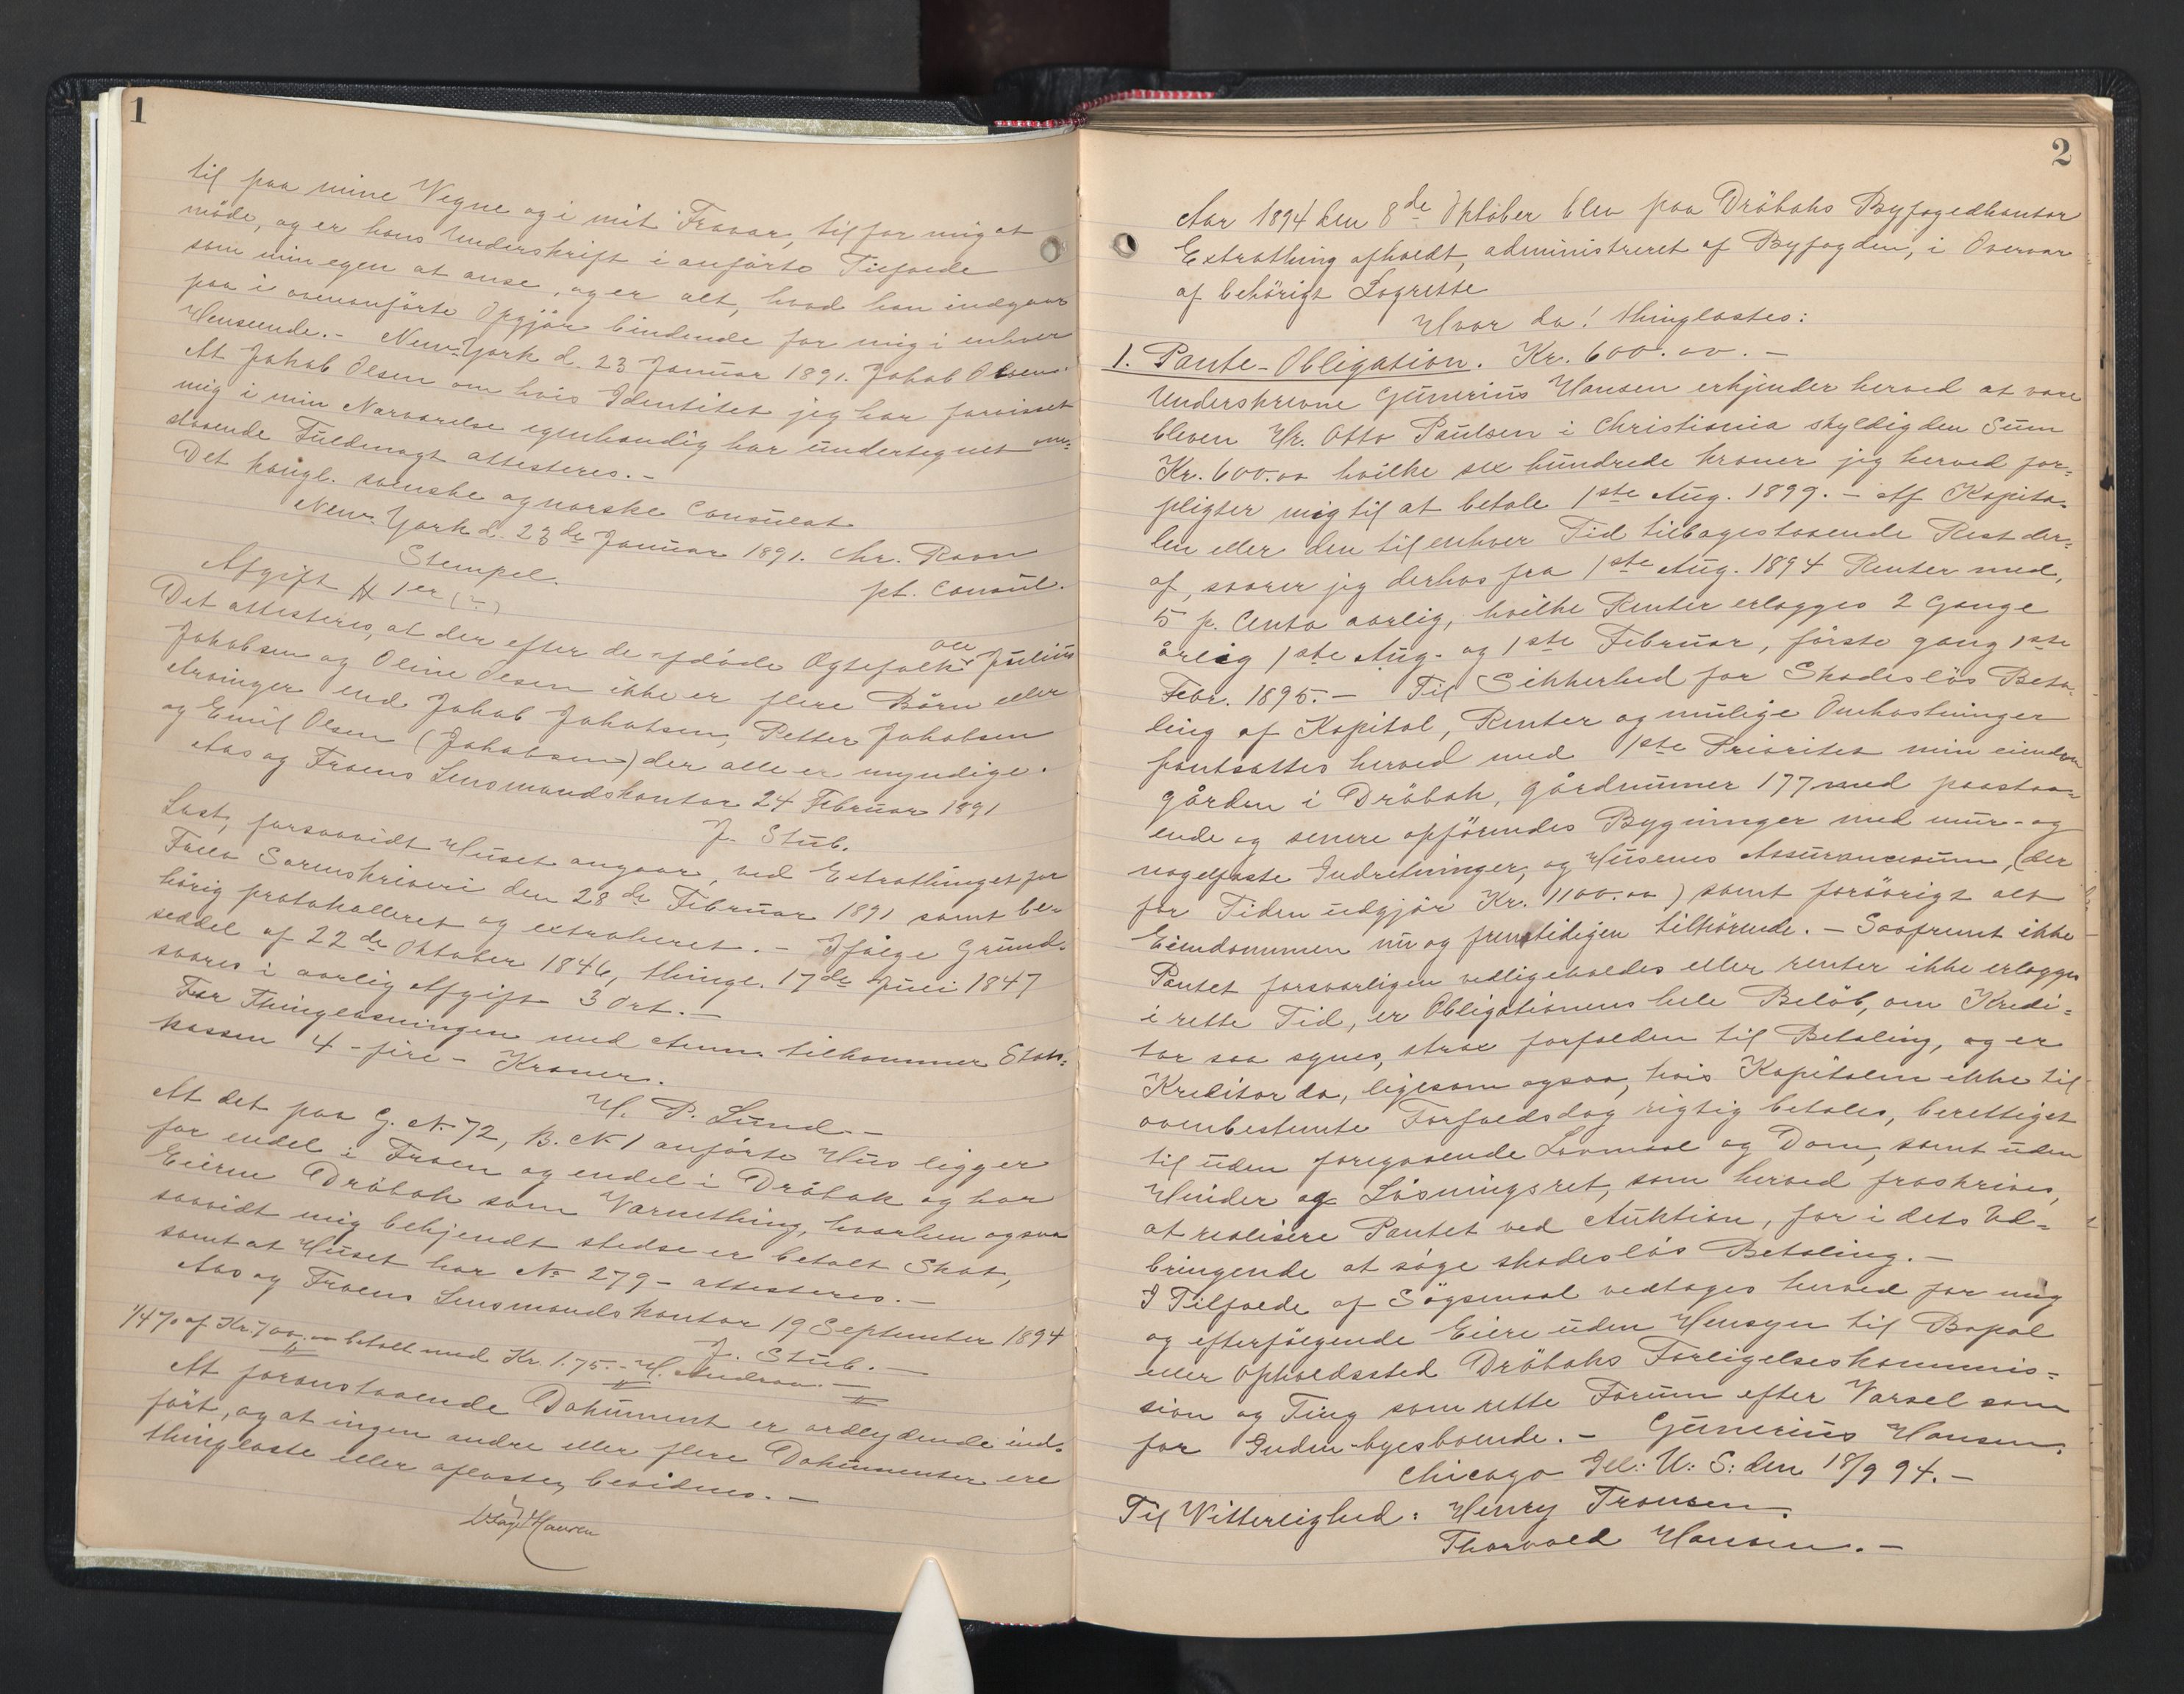 1
til paa mine Vegne og i mit Fravær, til for mig at
møde, og er hans Underskrift i anførte Tilfælde
som min egen at anse, og er alt, hvad han indgaar
paa i ovenanførte Opgjør bindende for mig i enhver
Henseende. - New-York d. 23 Januar 1891. Jakob Olsen.
At Jakob Olsen om hvis Identitet jeg har forvisset
mig i min Nærværelse egenhændig har undertegnet om-
staaende Fuldmagt attesteres. -
Det kongl. svenske og norske Consulat
New-York d. 23de Januar 1891. Chr. Ravn
Stempel. pt. Consul.
Afgift 1er
Det attesteres, at der efter de afdøde Ægtefolk Ole Julius
Jakobsen og Oline Olsen ikke er flere Børn eller
Arvinger end Jakob Jakobsen, Petter Jakobsen
og Emil Olsen (Jakobsen) der alle er myndige.
Aas og Froens Lensmandskontor 24 Februar 1891
J. Stub.
Læst, forsaavidt Huset angaar, ved Extrathinget for
Follo Sorenskriveri den 28de Februar 1891 samt be-
hørig protokolleret og extraheret. - Ifølge Grund-
seddel af 22de Oktober 1846, thingl. 17de Juli 1847
svares i aarlig Afgift 3 Ort. -
For Thinglæsningen med Anm. tilkommer Stats-
kassen 4 - fire - Kroner.
H. P. Lund -
At det paa G. No 72, B. No 1 anførte Hus ligger
for endel i Froen og endel i Drøbak og har
Eierne Drøbak som Værnething, hvorhen ogsaa
saavidt mig bekjendt stedse er betalt Skat,
samt at Huset har No 279 - attesteres. -
Aas og Froens Lensmandskontor 19 September 1894
J. Stub. -
1/4 % af Kr. 700.00 betalt med Kr. 1.75. - H.
At foranstaaende Dokument er ordlydende ind-
ført, og at ingen andre eller flere Dokumenter ere
thinglæste eller aflæste, bevidnes. -
Hansen
2
Aar 1894 den 8de Oktober blev paa Drøbaks Byfogedkontor
Extrathing afholdt, administreret af Byfogden, i Overvær
af behørigt Lagrette
Hvor da! thinglæstes:
1. Pante-Obligation. Kr. 600.00. -
Underskrevne Gunerius Hansen erkjender herved at være
bleven Hr. Otto Paulsen i Christiania skyldig den Sum
Kr. 600.00 hvilke sex hundrede kroner jeg herved for-
pligter mig til at betale 1ste Aug. 1899. - Af Kapita-
len eller den til enhver Tid tilbagestaaende Rest der-
af, svarer jeg derhos fra 1ste Aug. 1894 Renter med,
5 p. Cento aarlig, hvilke Renter erlægges 2 Gange
årlig 1ste Aug. og 1ste Februar, første gang 1ste
Febr. 1895. - Til Sikkerhed for Skadesløs Beta-
ling af Kapital, Renter og mulige Omkostninger
pantsættes herved med 1ste Prioritet min eiendom
gården i Drøbak, gårdnummer 177 med paastaa-
ende og senere opførendes Bygninger med mur- og
nagelfaste Indretninger, og Husenes Assurancesum, (der
for Tiden udgjør Kr. 1100.00) samt forøvrigt alt
Eiendommen nu og fremtidigen tilhørende. - Saafremt ikke
Pantet forsvarligen vedligeholdes eller renter ikke erlægges
i rette Tid, er Obligationens hele Beløb, om Kredi-
tor saa synes, strax forfalden til Betaling, og er
Kreditor da, ligesom ogsaa, hvis Kapitalen ikke til
ovenbestemte Forfaldsdag rigtig betales, berettiget
til uden foregaaende Lovmaal og Dom, samt uden
Hinder og Løsningsret, som herved fraskrives,
at realisere Pantet ved Auktion, for i dets Ud-
bringende at søge skadesløs Betaling. -
I Tilfælde af Søgsmaal vedtages herved for mig
og efterfølgende Eiere uden Hensyn til Bopæl
eller Opholdssted Drøbaks Forligelseskommis-
sion og Ting som rette Forum efter Varsel som
for Inden-byesboende. - Gunerius Hansen.
Chicago Ill: U: S: den 18/9 94. -
Til Vitterlighed: Henry Fransen.
Thorvald Hansen. -